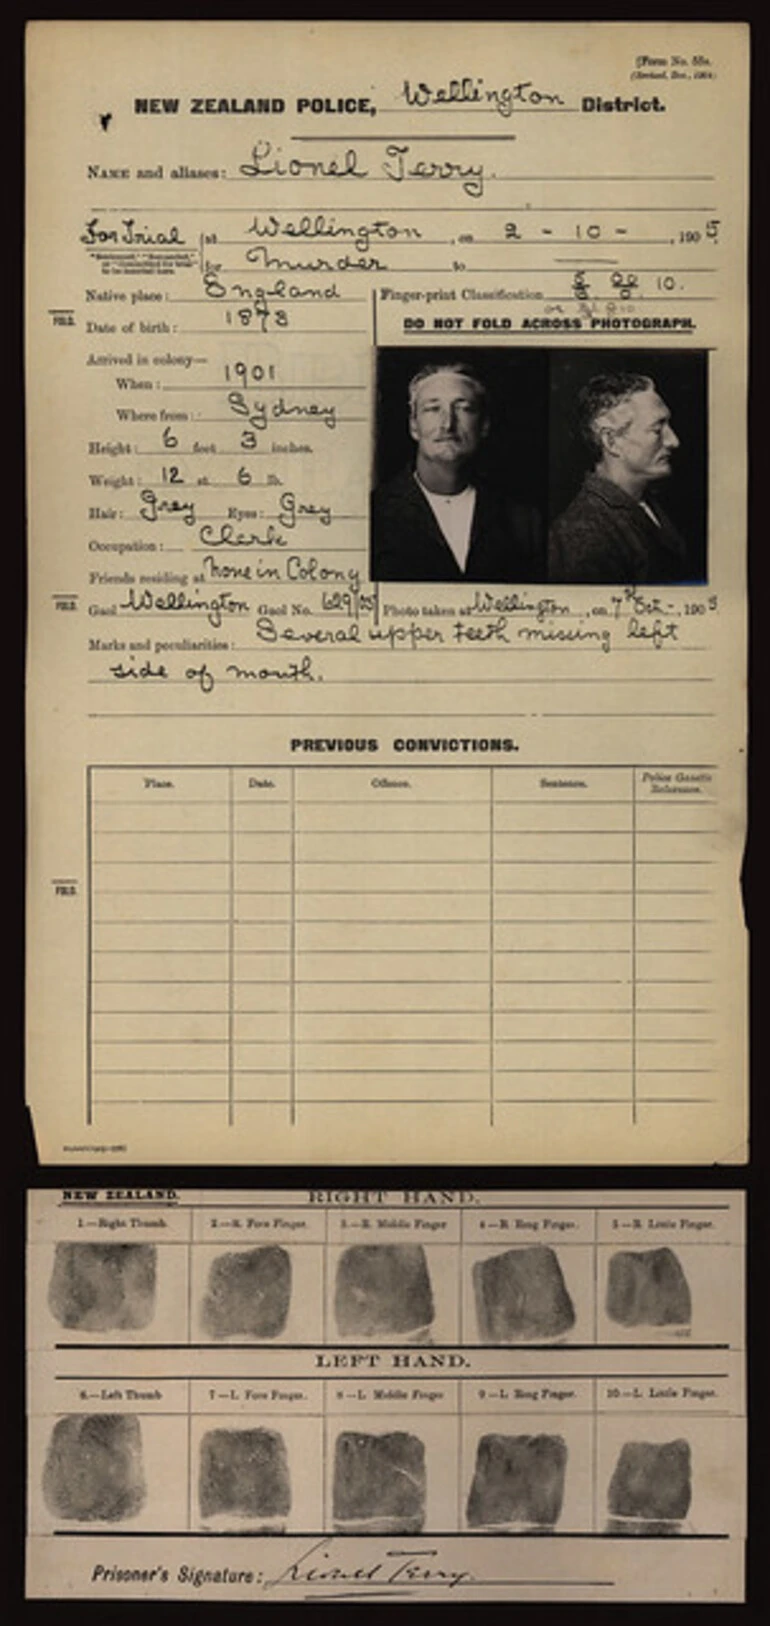 [Form No. 55a.
(Revised, Dec., 1904)
NEW ZEALAND POLICE, Wellington District.
NAME and aliases: Lionel Terry.
For Trial at Wellington, on 2 - 10 -, 1905
for Murder to
Native place: England
Finger-print Classification 10.
FOLD.
Date of birth: 1873
DO NOT FOLD ACROSS PHOTOGRAPH.
Arrived in colony—
When: 1901
Where from: Sydney
Height: 6 feet 3 inches.
Weight: 12 st. 6 lb.
Hair: Grey Eyes: Grey
Occupation: Clerk
Friends residing at None in Colony
FOLD. Gaol Wellington Gaol No. 629/05 Photo taken at Wellington, on 7th Oct-, 1905
Marks and peculiarities: Several upper teeth missing left
side of mouth.
PREVIOUS CONVICTIONS.
Place. Date. Offence. Sentence. Police Gazette
Reference.
FOLD.
NEW ZEALAND. RIGHT HAND.
1.—Right Thumb. 2.—R. Fore Finger. 3.—R. Middle Finger 4.—R. Ring Finger. 5.—R. Little Finger.
LEFT HAND.
6.—Left Thumb 7.—L. Fore Finger. 8.—L. Middle Finger 9.—L. Ring Finger. 10.—L. Little Finger.
Prisoner's Signature: Lionel Terry.